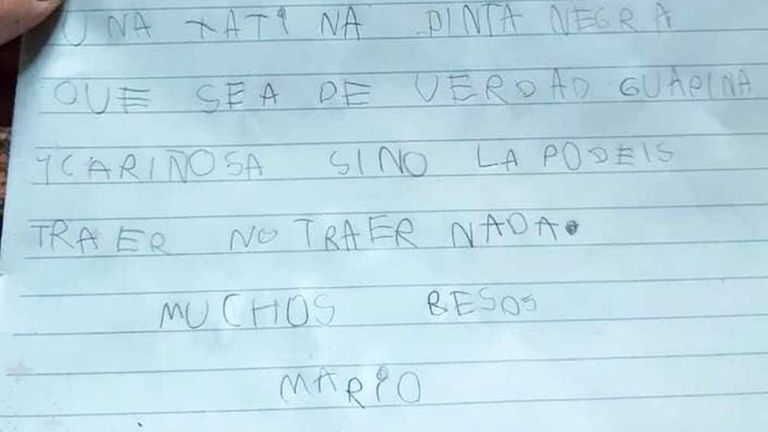 UNA XATINA PINTA NEGRA
QUE SEA DE VERDAD GUAPINA
Y CARIÑOSA SINO LA PODEIS
TRAER NO TRAER NADA.
MUCHOS BESOS
MARIO